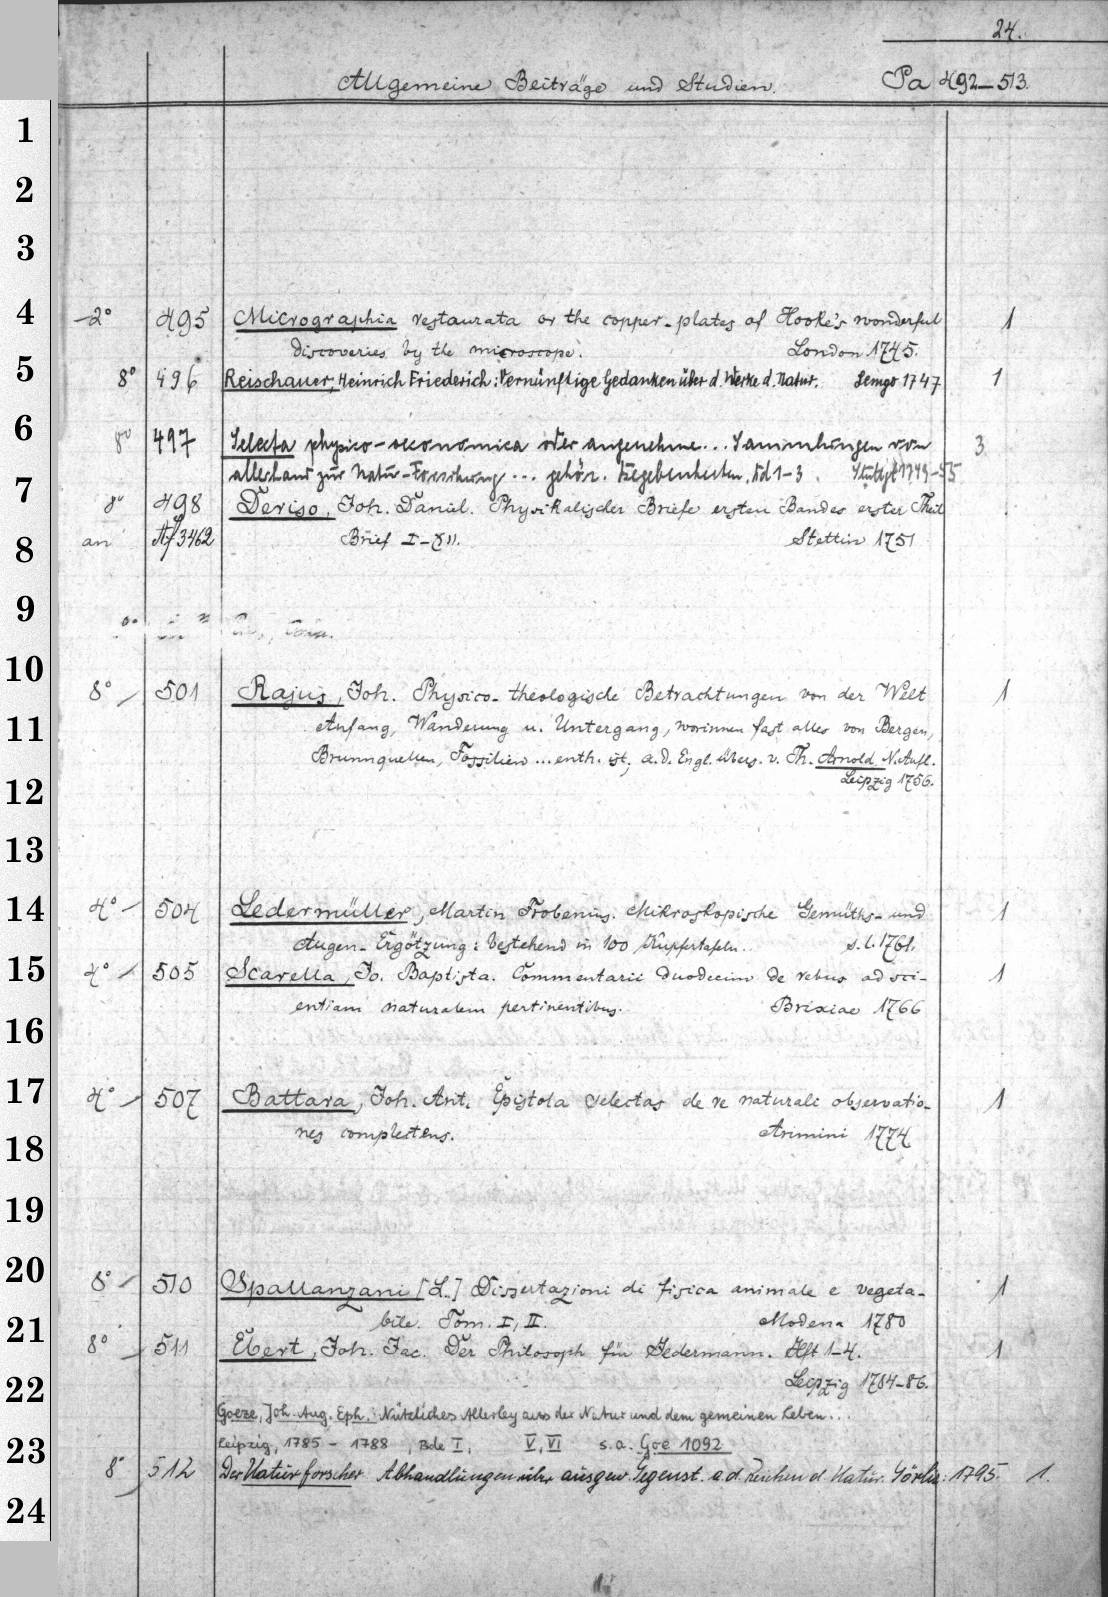 24.
Allgemeine Beiträge und Studien. Pa 492–513.
1
2
3
4 2° 495 Micrographia restaurata or the copper-plates of Hooke's wonderful 1
discoveries by the microscope. London 1745.
5 8° 496 Reischauer, Heinrich Friederich: Vernünftige Gedanken über d. Werke d. Natur. Lemgo 1747 1
6 8° 497 Selecta physico-oeconomica oder angenehme... Sammlungen von 3
allerhand zur Natur-Forschung ... gehör. Begebenheiten. Bd 1–3. Stuttgt 1749–55
7 8° 498 Deriso, Joh. Daniel. Physikalischer Briefe ersten Bandes erster Theil
8 an Af 3462 Brief I–XII. Stettin 1751
9
10 8° 501 Rajus, Joh. Physico-theologische Betrachtungen von der Welt 1
11 Anfang, Wanderung u. Untergang, worinnen fast alles von Bergen,
Brunnquellen, Fossilien ... enth. ist, a. d. Engl. übers. v. Th. Arnold N. Aufl.
12 Leipzig 1756.
13
14 4° 504 Ledermüller, Martin Frobenius. Mikroskopische Gemüths- und 1
Augen-Ergötzung: bestehend in 100 Kupfertafeln.. s. l. 1761.
15 4° 505 Scarella, Jo. Baptista. Commentarii duodecim de rebus ad sci- 1
16 entiam naturalem pertinentibus. Brixiae 1766
17 4° 507 Battara, Joh. Ant. Epistola selectas de re naturali observatio- 1
18 nes complectens. Arimini 1774
19
20 8° 510 Spallanzani [L.] Dissertazioni di fisica animale e vegeta- 1
21 bile. Tom. I, II. Modena 1780
8° 511 Ebert, Joh. Jac. Der Philosoph für Jedermann. Hft 1–4. 1
22 Leipzig 1784–86.
Goeze, Joh. Aug. Eph.: Nützliches Allerley aus der Natur und dem gemeinen Leben...
23 Leipzig, 1785 – 1788, Bde I, V, VI s. a. Goe 1092
8° 512 Der Naturforscher Abhandlungen über ausgew. Gegenst. a. d. Reichen d. Natur. Görlitz: 1795. 1.
24